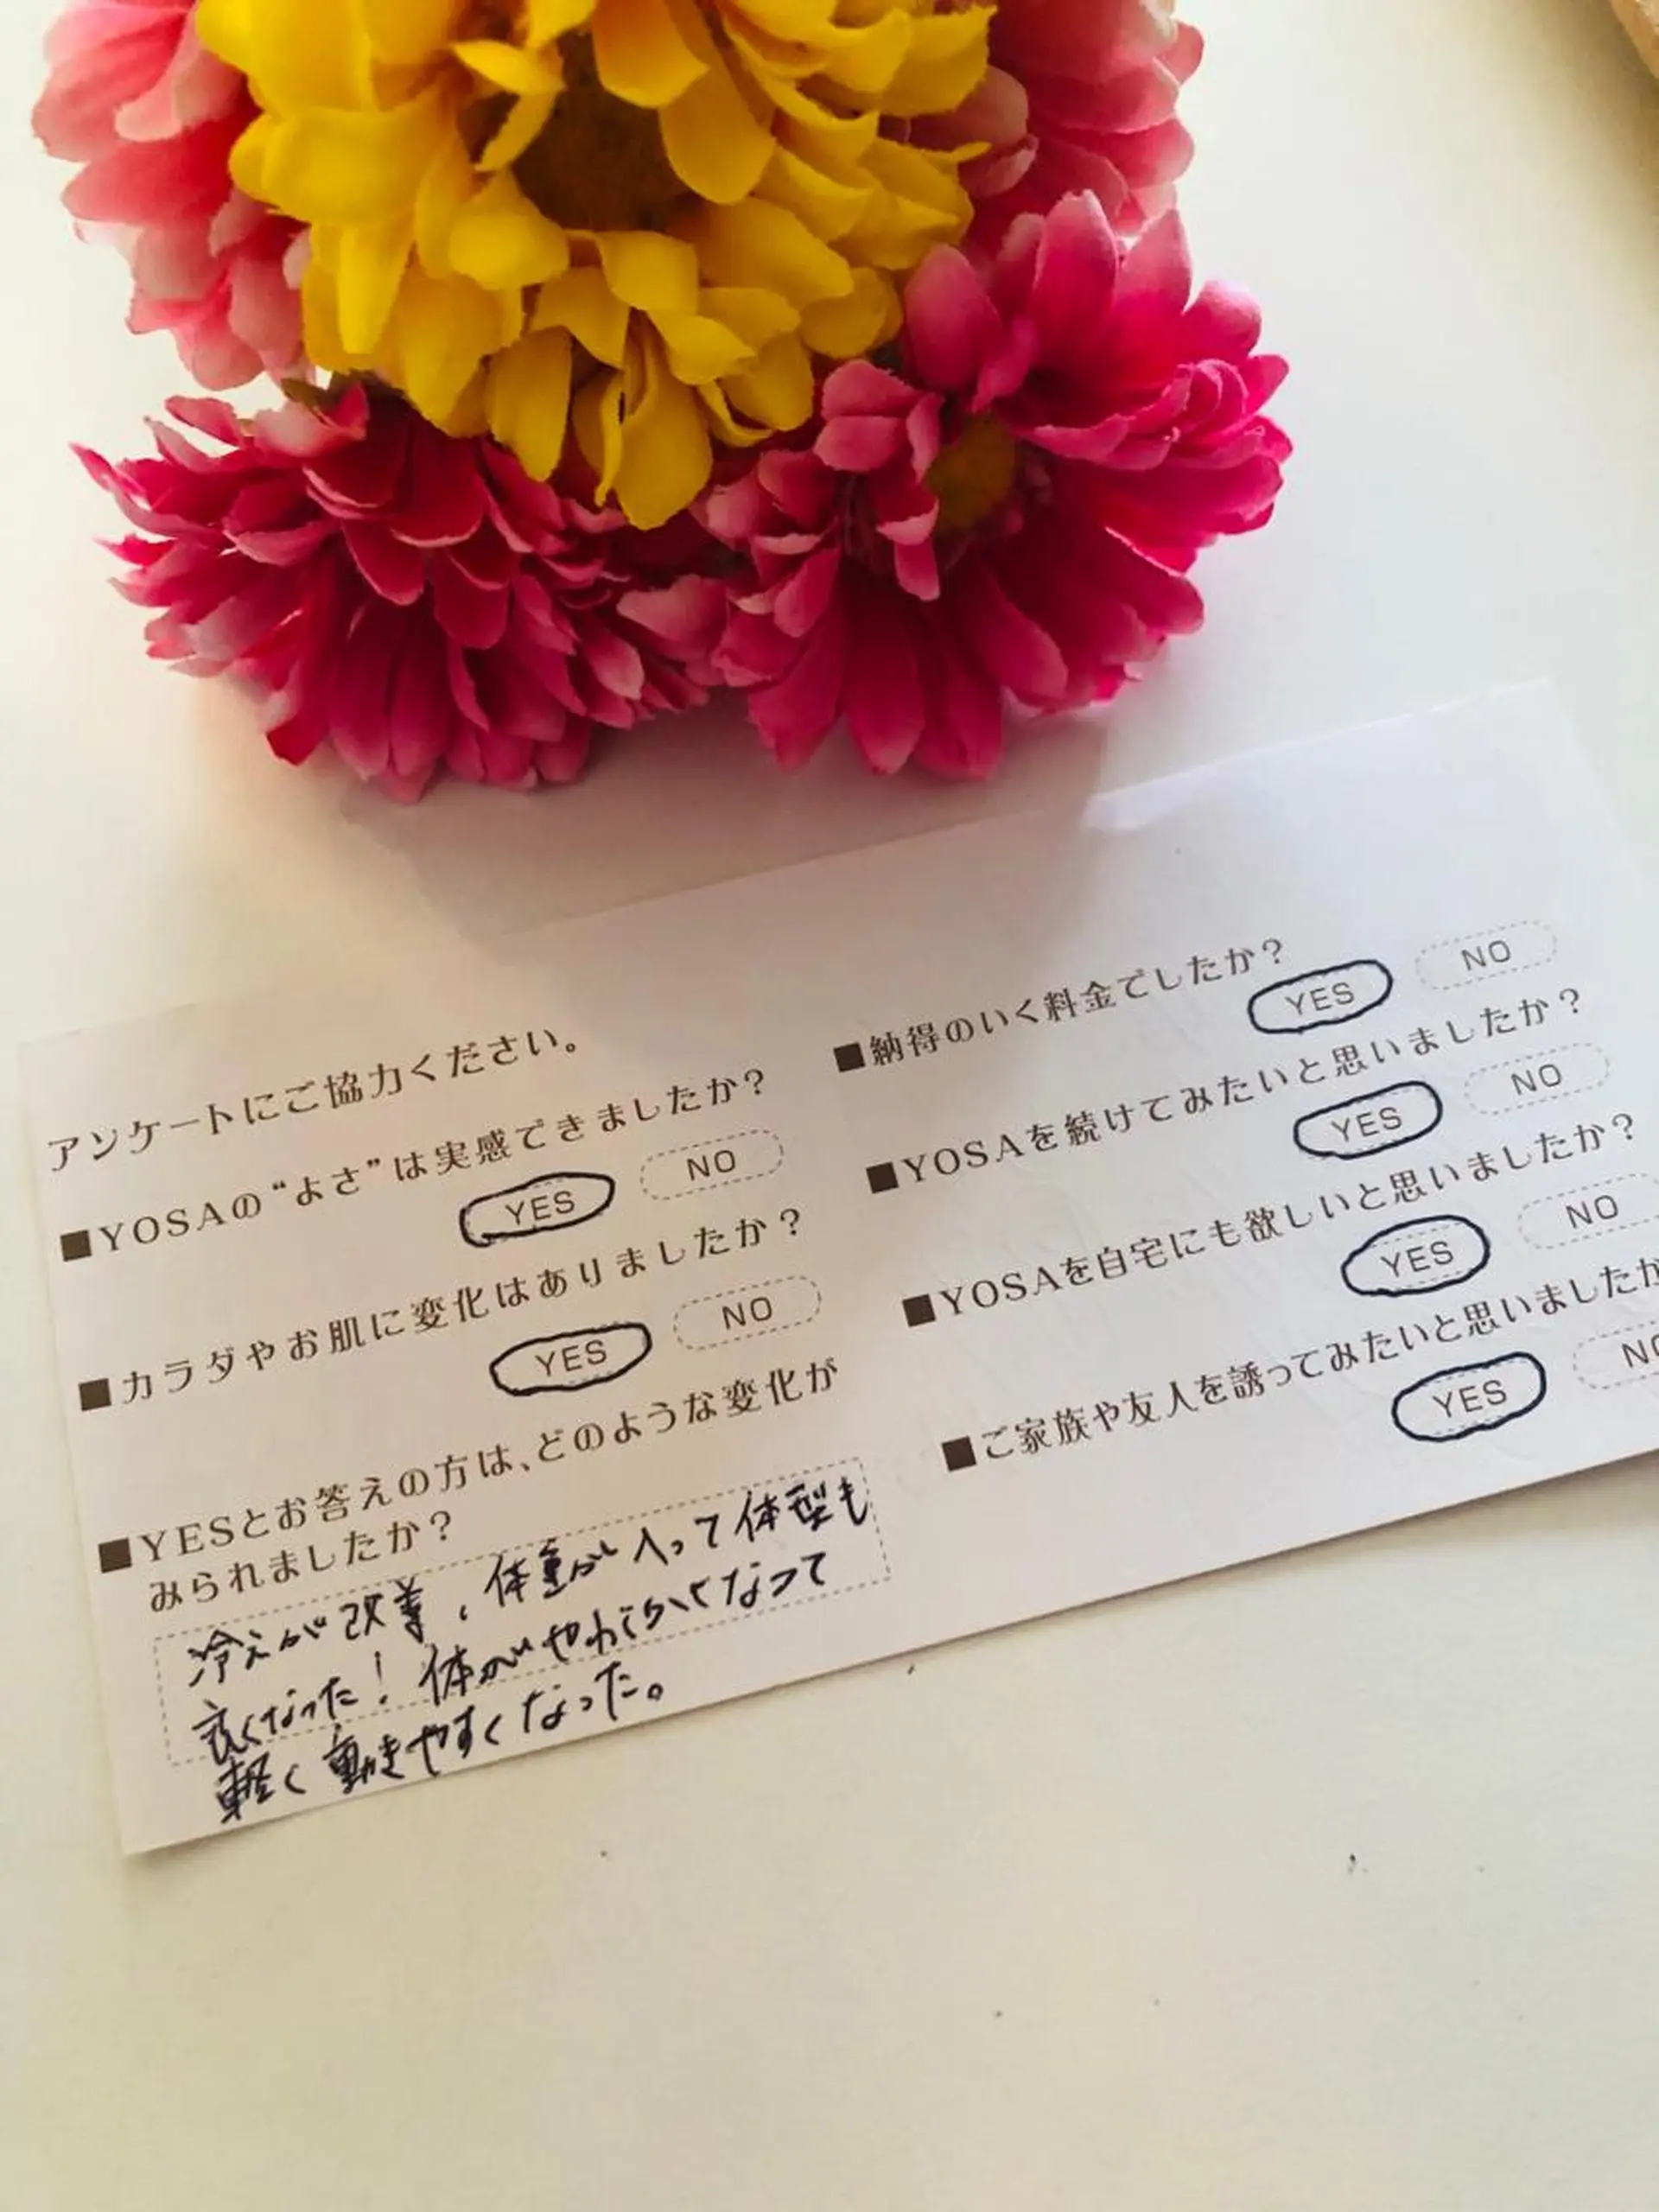 アンケートにご協力ください。
■YOSAの“よさ”は実感できましたか？
YES NO
■カラダやお肌に変化はありましたか？
YES NO
■YESとお答えの方は、どのような変化が
みられましたか？
冷えが改善、体重が入って体型も
良くなった！体がやわらかくなって
軽く動きやすくなった。
■納得のいく料金でしたか？
YES NO
■YOSAを続けてみたいと思いましたか？
YES NO
■YOSAを自宅にも欲しいと思いましたか？
YES NO
■ご家族や友人を誘ってみたいと思いましたか
YES NO